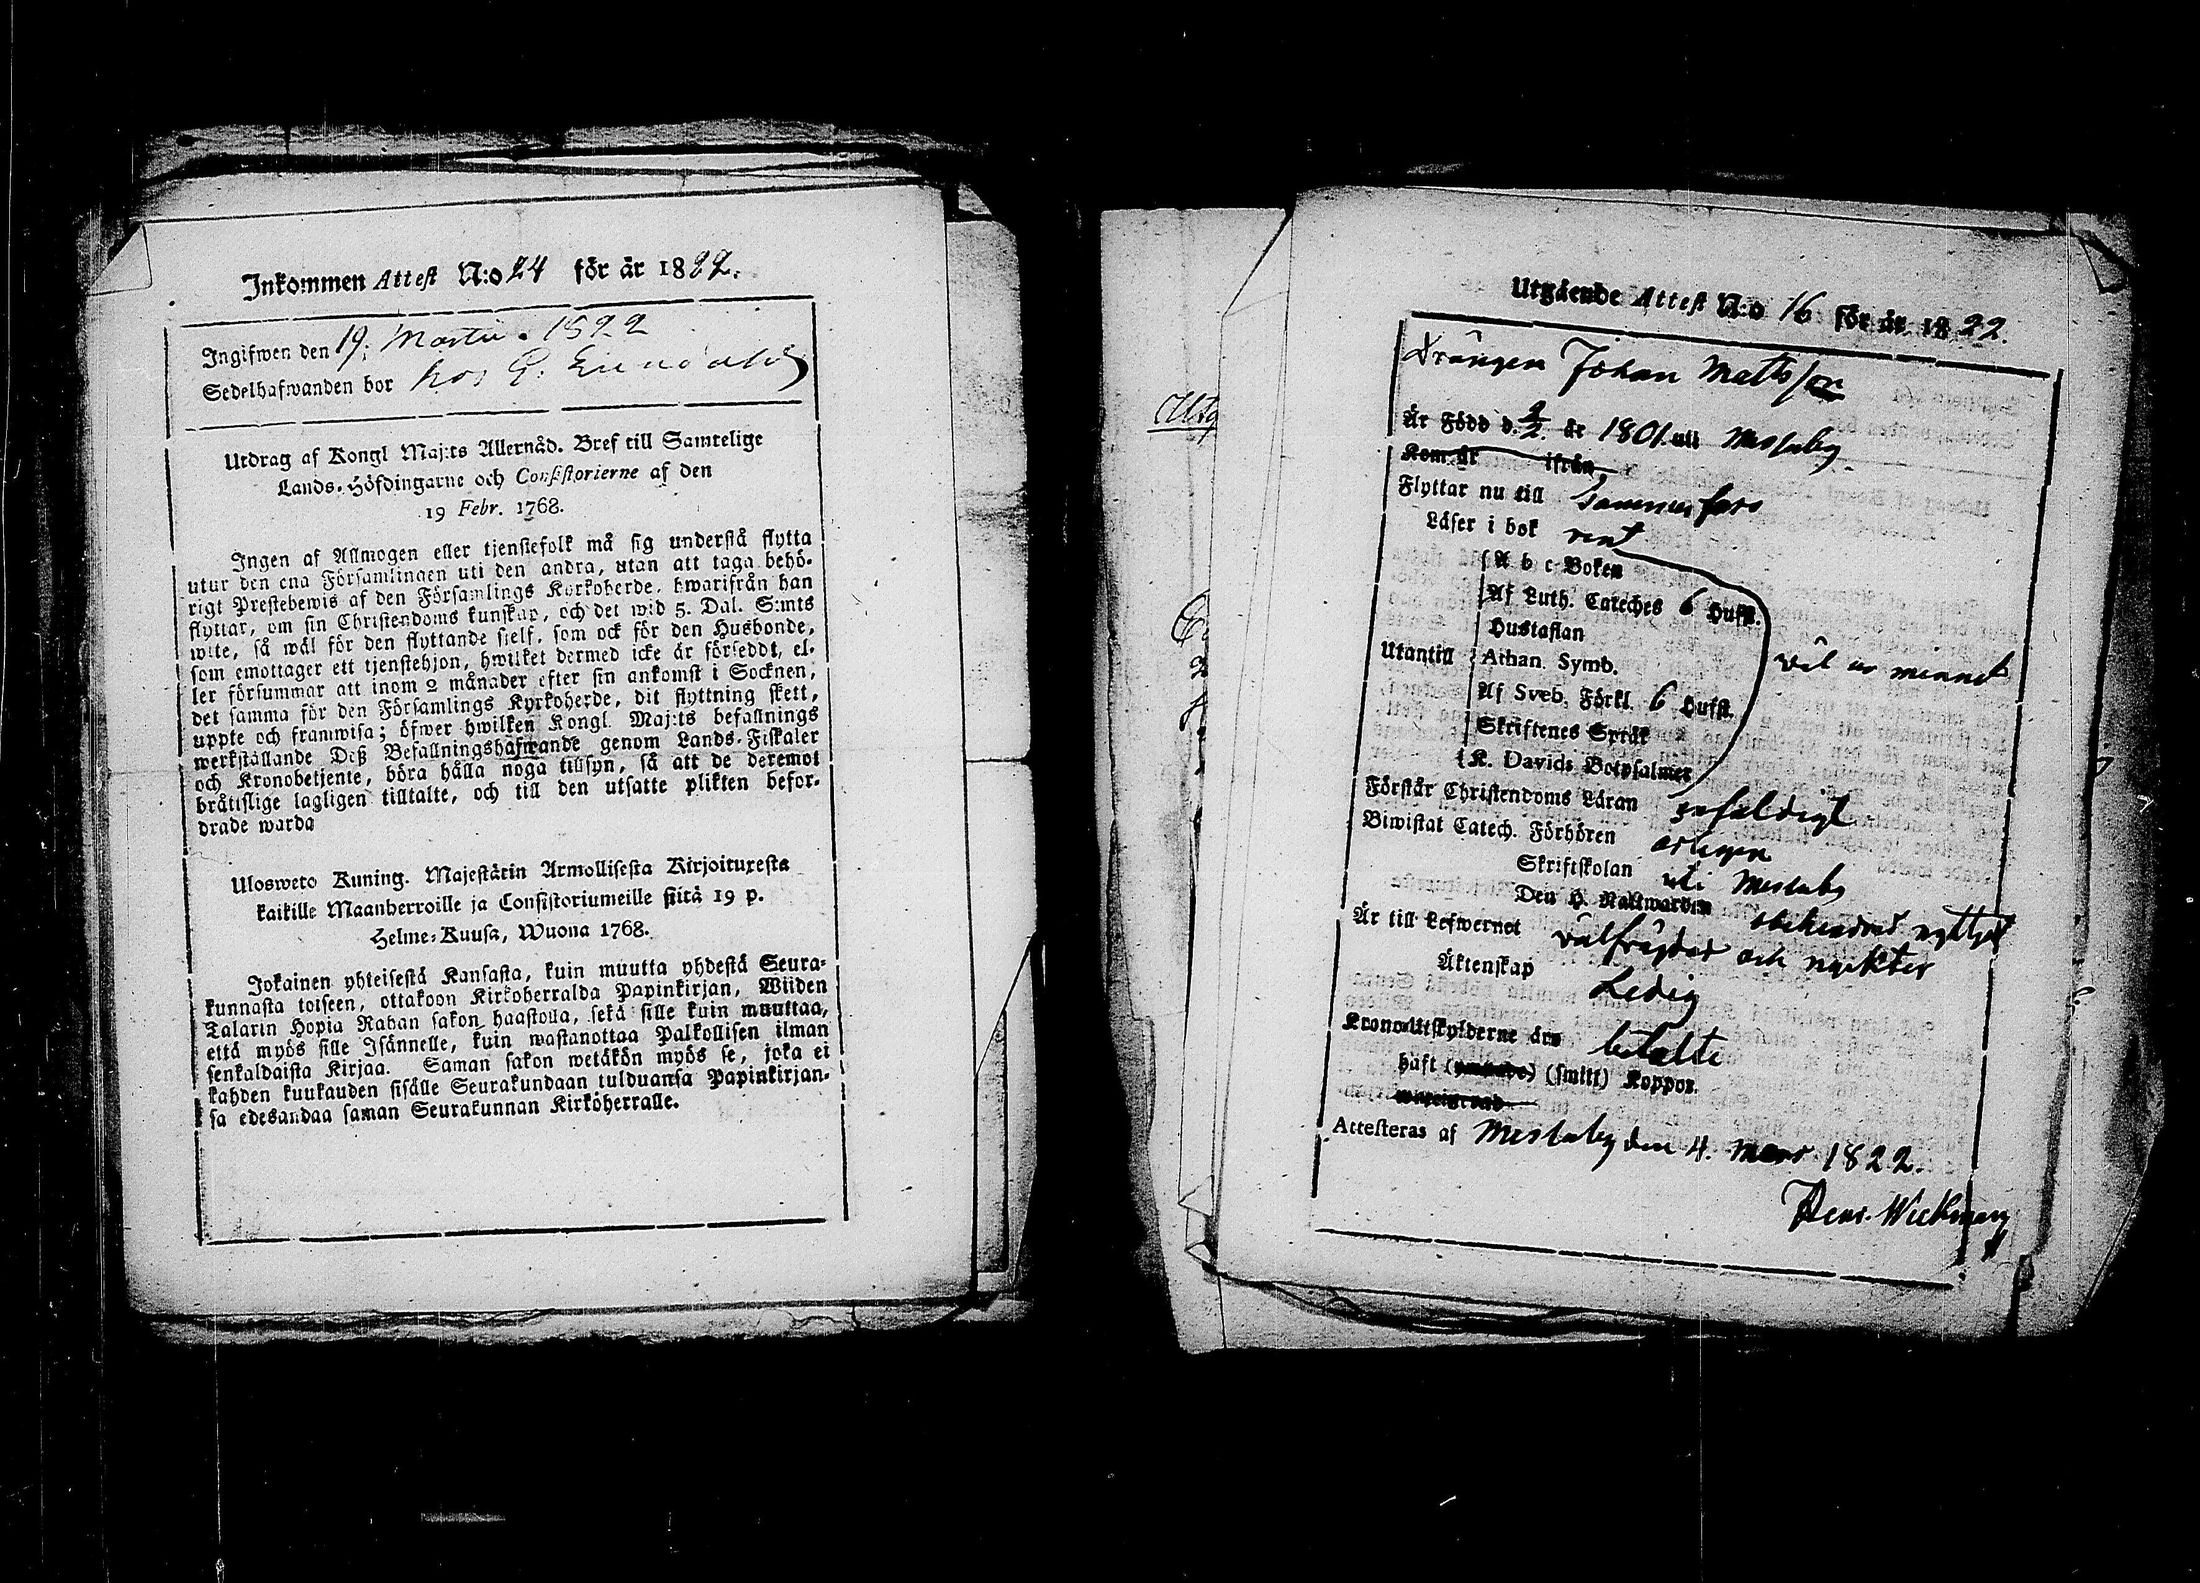 Inkommen Attest N:o 24 för år 1822.
Ingifwen den 19. Martii. 1822
Sedelhafwanden bor hos G.
Utdrag af Kongl Maj:ts Allernåd. Bref till Samtelige
Lands-Höfdingarne och Consistorierne af den
19 Febr. 1768.
Ingen af Allmogen eller tjenstefolk må sig understå flytta
utur den ena Församlingen uti den andra, utan att taga behö-
rigt Prestebewis af den Församlings Kyrkoherde, hwarifrån han
flyttar, om sin Christendoms kunskap, och det wid 5. Dal. S:mts
wite, så wäl för den flyttande sielf, som ock för den Husbonde,
som emottager ett tjenstehjon, hwilket dermed icke är försedt, el-
ler försummar att inom 2 månader efter sin ankomst i Socknen,
det samma för den Församlings Kyrkoherde, dit flyttning skett,
uppte och framwisa; öfwer hwilken Kongl. Maj:ts befallnings
werkställande Deß Befallningshafwande genom Lands-Fiskaler
och Kronobetjente, böra hålla noga tillsyn, så att de deremot
bråttslige lagligen tilltalte, och till den utsatte plikten befor-
drade warda
Ulosweto Kuning. Majestätin Armollisesta Kirjoituxesta
kaikille Maanherroille ja Consistoriumeille siitä 19 p.
Helme-Kuusa, Wuona 1768.
Jokainen yhteisestä Kansasta, kuin muutta yhdestä Seura-
kunnasta toiseen, ottakoon Kirkoherralda Papinkirjan, Wiiden
Talarin Hopia Rahan sakon haastolla, sekä sille kuin muuttaa,
että myös sille Isännelle, kuin wastanottaa Palkollisen ilman
senkaldaista Kirjaa. Saman sakon wetäkön myös se, joka ei
kahden kuukauden sisälle Seurakundaan tulduansa Papinkirjan-
sa edesandaa saman Seurakunnan Kirköherralle.
Utg
Utgående Attest N:o 16 för år 1822.
Drängen Johan Mattsson
Är Född d. 2/2. år 1801 uti Messuby
Kom år ifrån
Flyttar nu till Tammerfors
Läser i bok rent
A b c-Boken
Af Luth. Cateches 6 Hufst.
Hustaflan
Utantill Athan. Symb. väl ur minnet
Af Sveb. Förkl. 6 Hufst.
Skriftenes Språk
K. Davids Botpsalmer
Förstår Christendoms Läran enfaldigt
Biwistat Catech. Förhören årligen
Skriftskolan uti Messuby
Den H. Nattwarden obehindrad nyttjat
Är till Lefwernet välfrejdad och nykter
Äktenskap Ledig
Krono-Utskylderne äro betalte
haft (smitt) Koppor.
Attesteras af Messuby den 4. Mars 1822.
Henr. Wickman